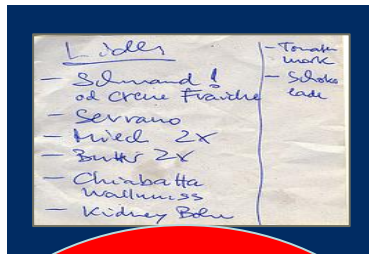 Lidl
– Schmand!
od Creme Fraiche
– Serrano
– Milch 2x
– Butter 2x
– Chiabatta
Wallnuss
– Kidney Bohn
– Tomaten
mark
– Schoko
lade